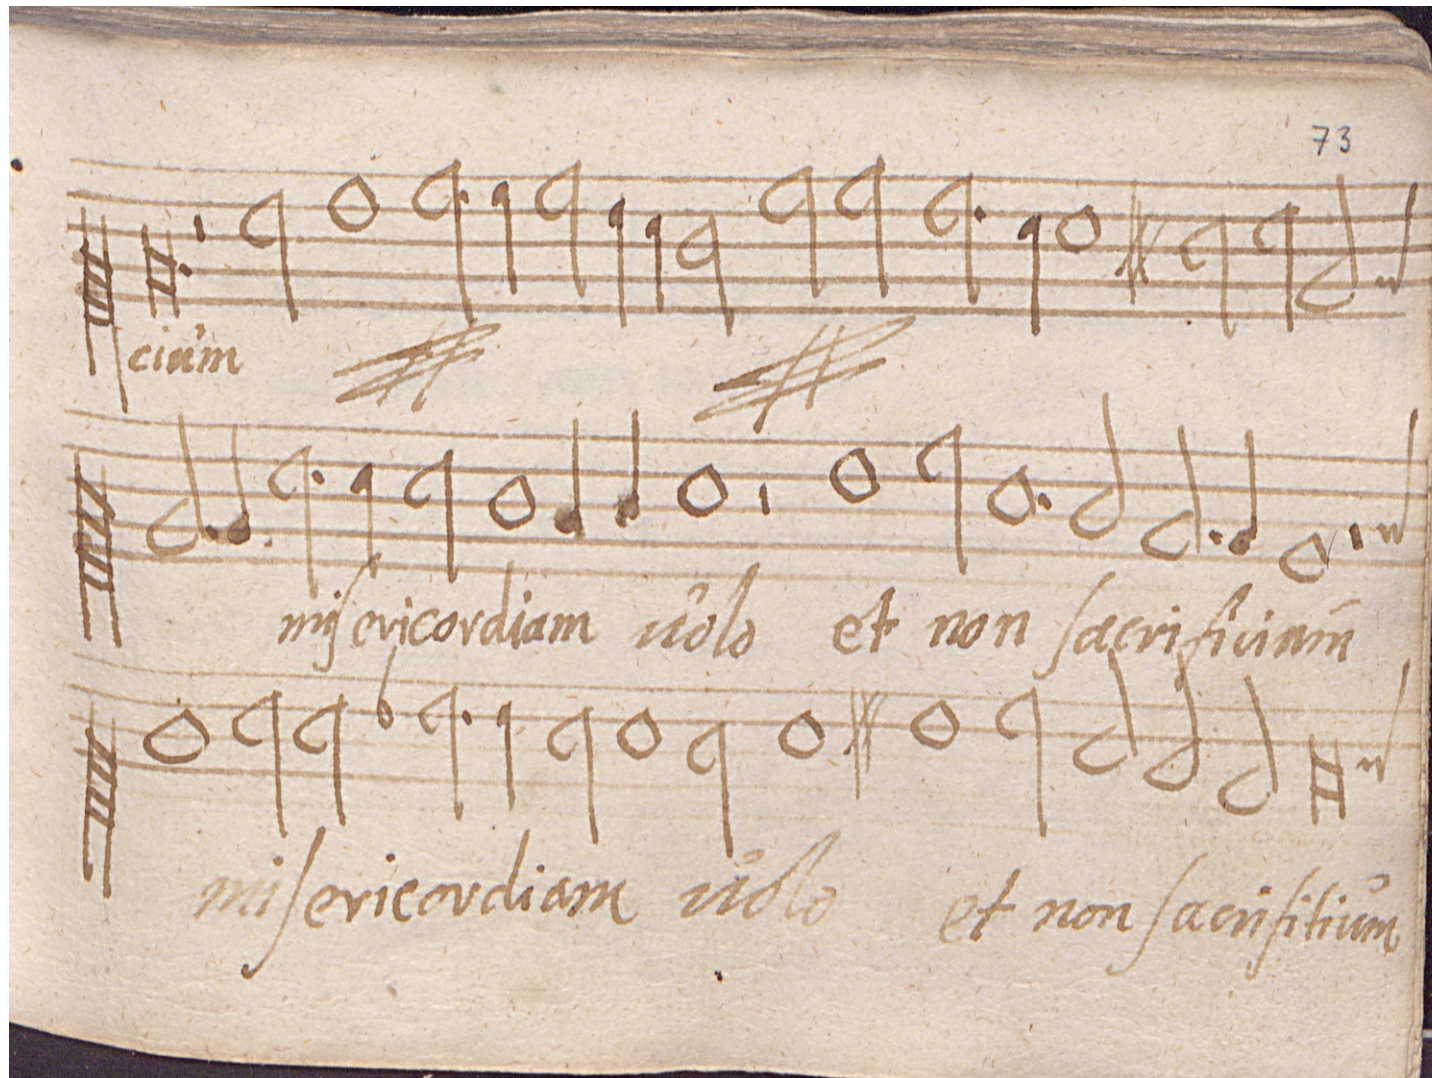 73
cium
misericordiam uolo et non sacrificium
misericordiam uolo et non sacrifitium